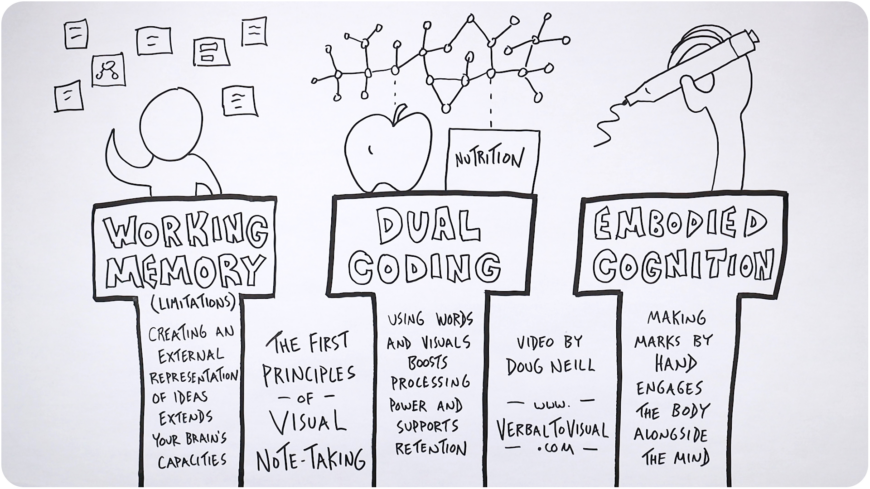 NUTRITION
WORKING
MEMORY
(LIMITATIONS)
CREATING AN
EXTERNAL
REPRESENTATION
OF IDEAS
EXTENDS
YOUR BRAIN'S
CAPACITIES
THE FIRST
PRINCIPLES
- OF -
VISUAL
NOTE-TAKING
DUAL
CODING
USING WORDS
AND VISUALS
BOOSTS
PROCESSING
POWER AND
SUPPORTS
RETENTION
VIDEO BY
DOUG NEILL
- WWW. -
VERBALTOVISUAL
- .COM -
EMBODIED
COGNITION
MAKING
MARKS BY
HAND
ENGAGES
THE BODY
ALONGSIDE
THE MIND